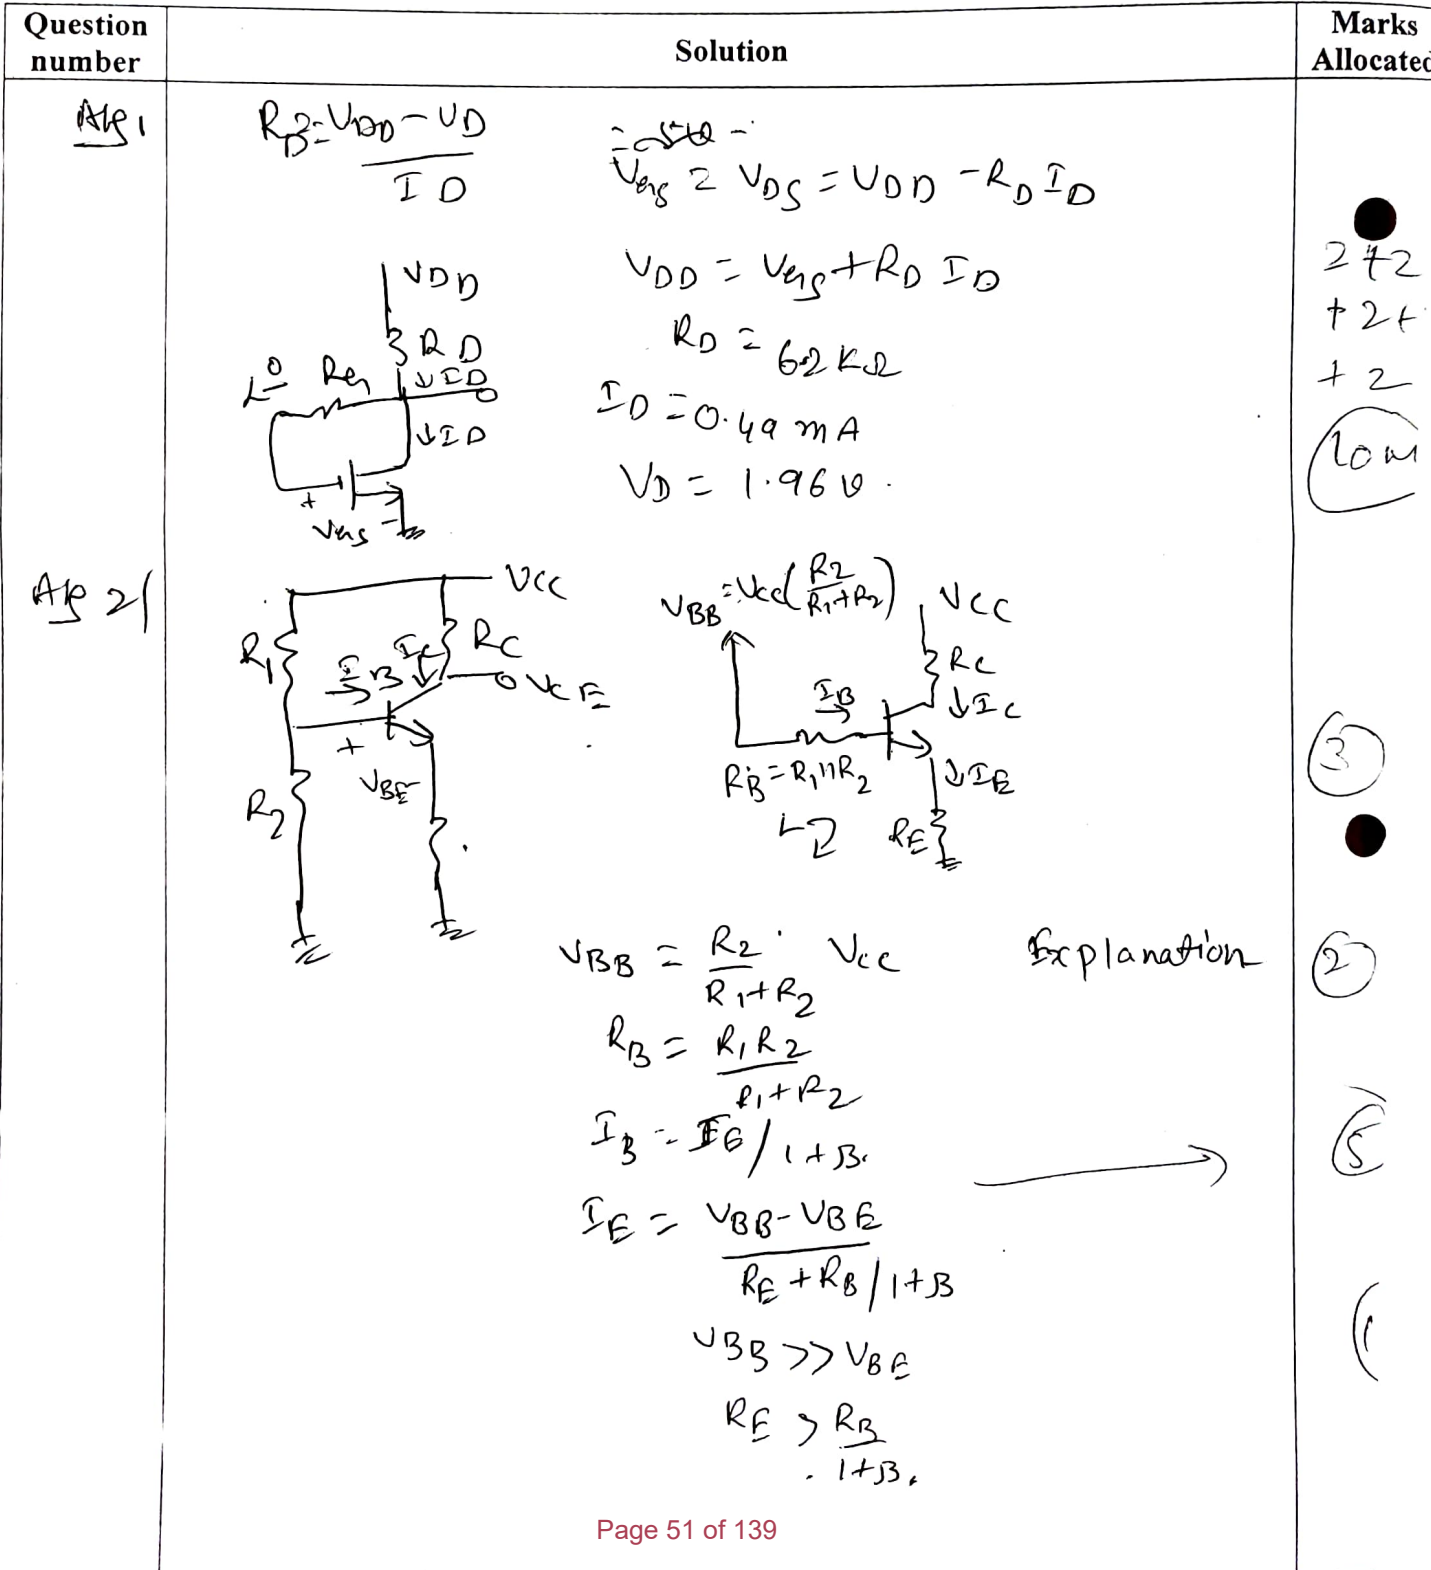 Question number
Solution
Marks Allocated
R_D = V_DD - V_D / I_D
V_GS = V_DS = V_DD - R_D I_D
V_DD = V_GS + R_D I_D
R_D = 6.2 KΩ
I_D = 0.49 mA
V_D = 1.96 V.
VDD
RD
↓ID
0
RG
↓ID
+
VGS
-
2+2
+2+
+2
10M
2)
VCC
R1
IB
IC
RC
VCE
+
VBE
-
R2
V_BB = Vcc(R2 / R1+R2)
VCC
RC
IB
↓IC
RB = R1 11 R2
↓IE
L
RE
3
V_BB = R2 / R1+R2 Vcc
Explanation
2
R_B = R1 R2 / R1+R2
I_B = IE / 1+β.
5
I_E = V_BB - V_BE / R_E + R_B / 1+β
V_BB >> V_BE
R_E > R_B / 1+β.
Page 51 of 139